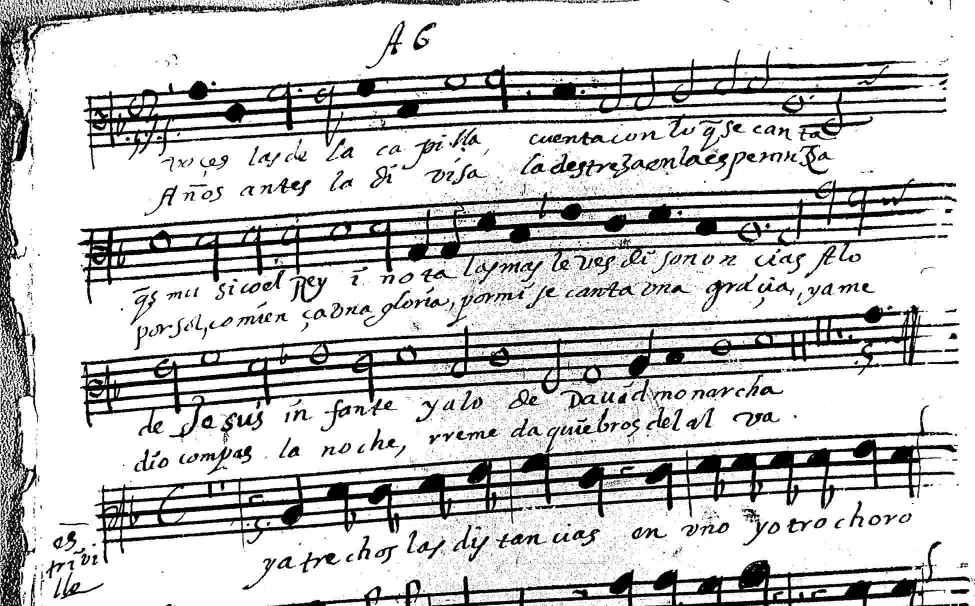 A 6
voçes las de la capilla, cuenta con lo q̃ se canta
Años antes la divisa la destreza en la esperanza
q̃s mu sico el Rey i nota las mas leves disonon cias Alo
por sol, comien ça vna gloria, por mi se canta vna gracia, ya me
de Jesus in fante y alo de Dauid monarcha
dio compas la noche, rreme da quiebros del al va.
es
tri vi
llo
ya trechos las distancias en vno y otro choro